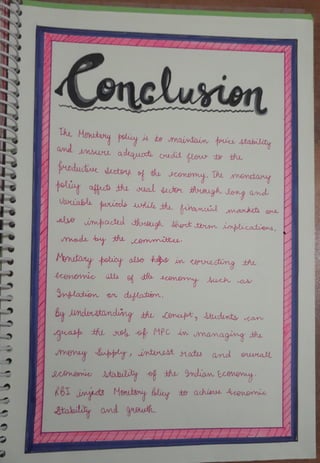 Conclusion
The Monetory policy is to maintain price stability
and ensure adequate credit flow to the
productive sectors of the economy. The monetary
policy affects the real sector through long and
variable periods while the financial markets are
also impacted through short term implications,
made by the committee.
Monetary policy also helps in correcting the
economic ills of the economy such as
Inflation or deflation.
By understanding the concept, students can
grasp the role of MPC in managing the
money supply, interest rates and overall
economic stability of the Indian Economy.
RBI injects Monetory Policy to achieve Economic
Stability and growth.